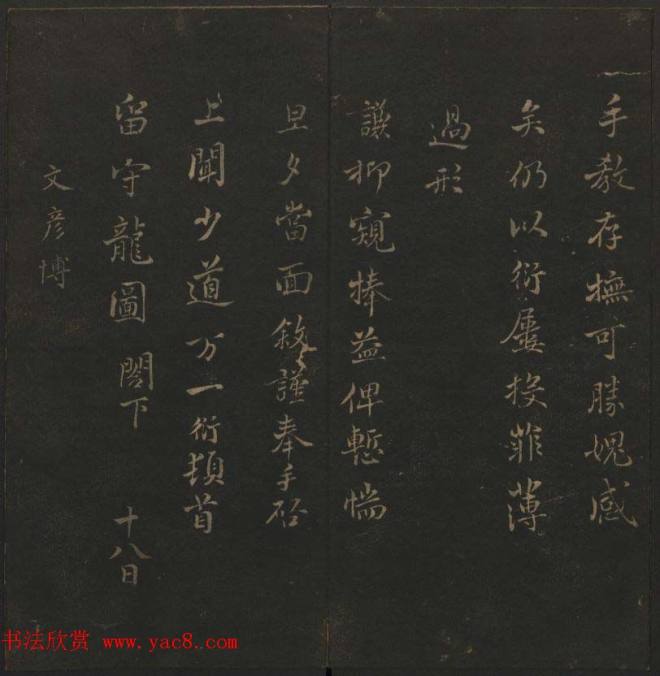 手教存撫可勝媿感
矣仍以衍屢投菲薄
過形
謙抑窺捧益俾慙惴
旦夕當面敘謹奉手啓
上聞少道万一衍頓首
留守龍圖閤下 十八日
文彦博
书法欣赏 www.yac8.com